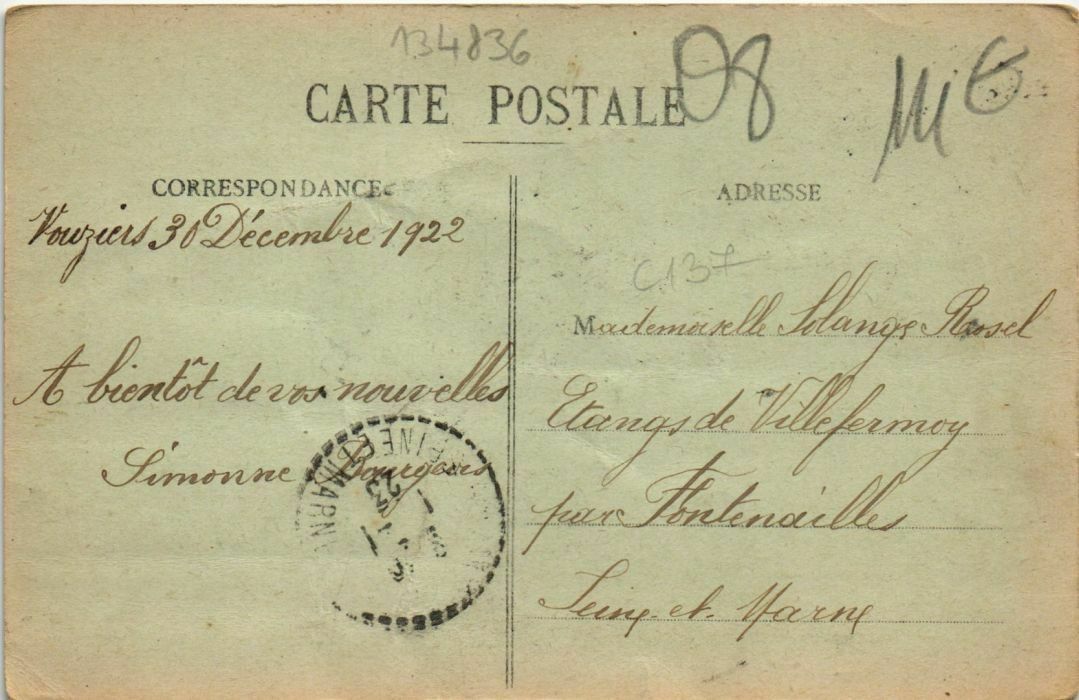 134836
CARTE POSTALE
08
CORRESPONDANCE
Vouziers 30 Décembre 1922
A bientôt de vos nouvelles
Simonne Bourgeois
SEINE ET MARNE
23
ADRESSE
C137
Mademoiselle Solange Rosel
Etangs de Villefermoy
par Fontenailles
Seine et Marne